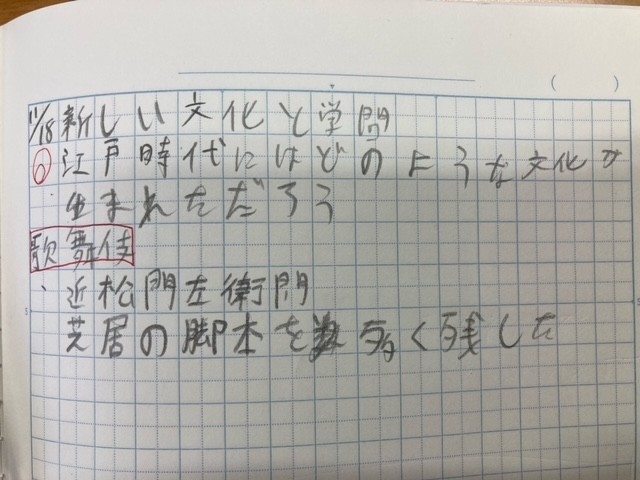 11/18 新しい文化と学問
め 江戸時代にはどのような文化が
生まれただろう
歌舞伎
・近松門左衛門
芝居の脚本を多く残した